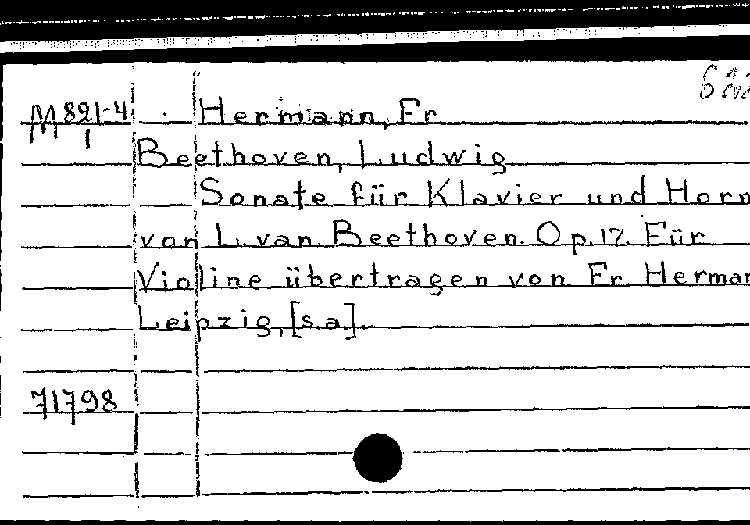 M 821-4 Hermann, Fr
I
Beethoven, Ludwig
Sonate für Klavier und Horn
von L. van Beethoven. Op. 17. Für
Violine übertragen von Fr. Herman
Leipzig, [s.a].
71798